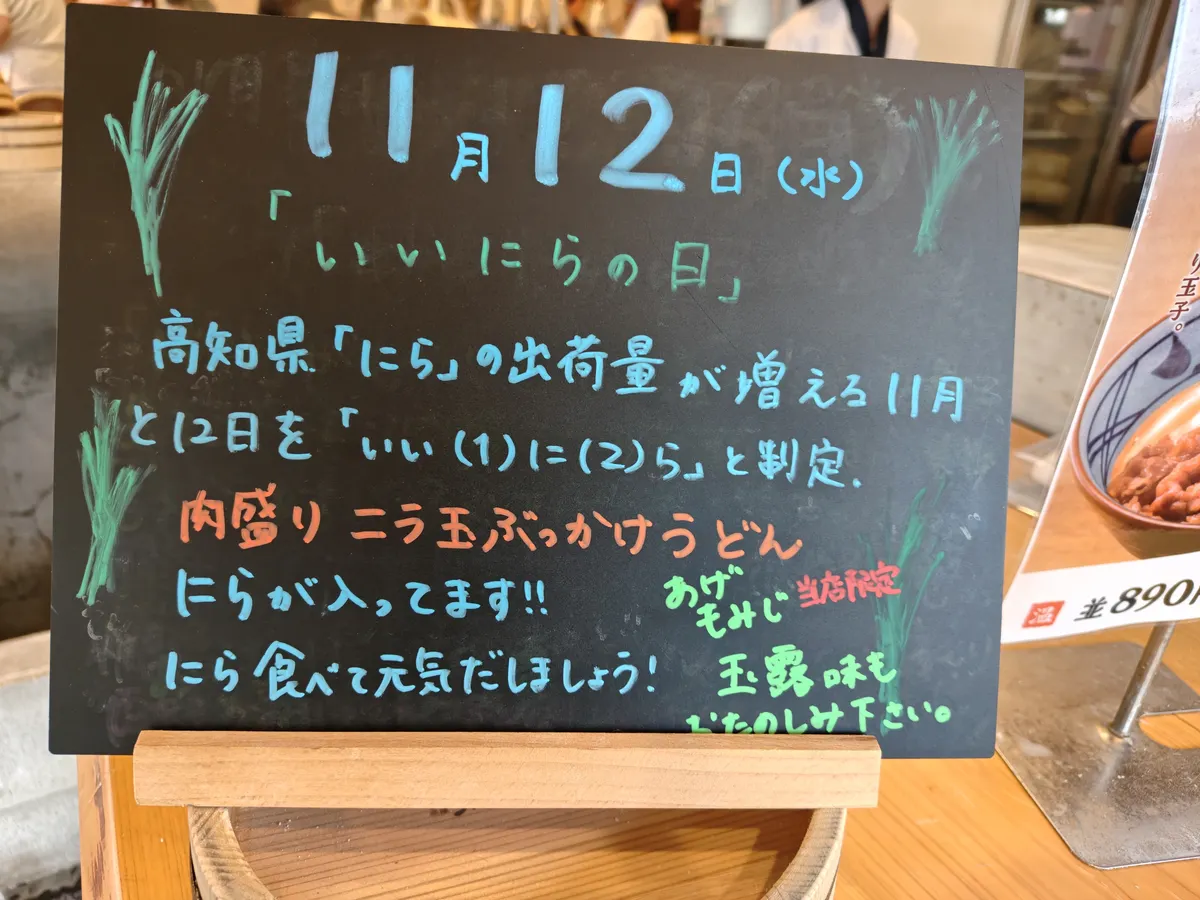 11月12日(水)
「いいにらの日」
高知県「にら」の出荷量が増える11月
と12日を「いい(1)に(2)ら」と制定.
肉盛り ニラ玉ぶっかけうどん
にらが入ってます!!
にら食べて元気だしましょう!
あげ
もみじ
当店限定
玉露味も
おたのしみ下さい。
り玉子。
温 並 890円